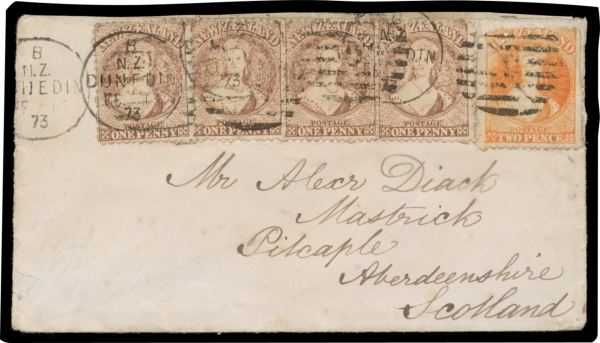 B
N.Z.
DUNEDIN
73
B
N.Z.
DUNEDIN
73
NEW ZEALAND
POSTAGE
ONE PENNY
NEW ZEALAND
73
POSTAGE
ONE PENNY
NEW ZEALAND
POSTAGE
ONE PENNY
POSTAGE
ONE PENNY
POSTAGE
TWO PENCE
Mr Alexr Diack
Mastrick
Pitcaple
Aberdeenshire
Scotland